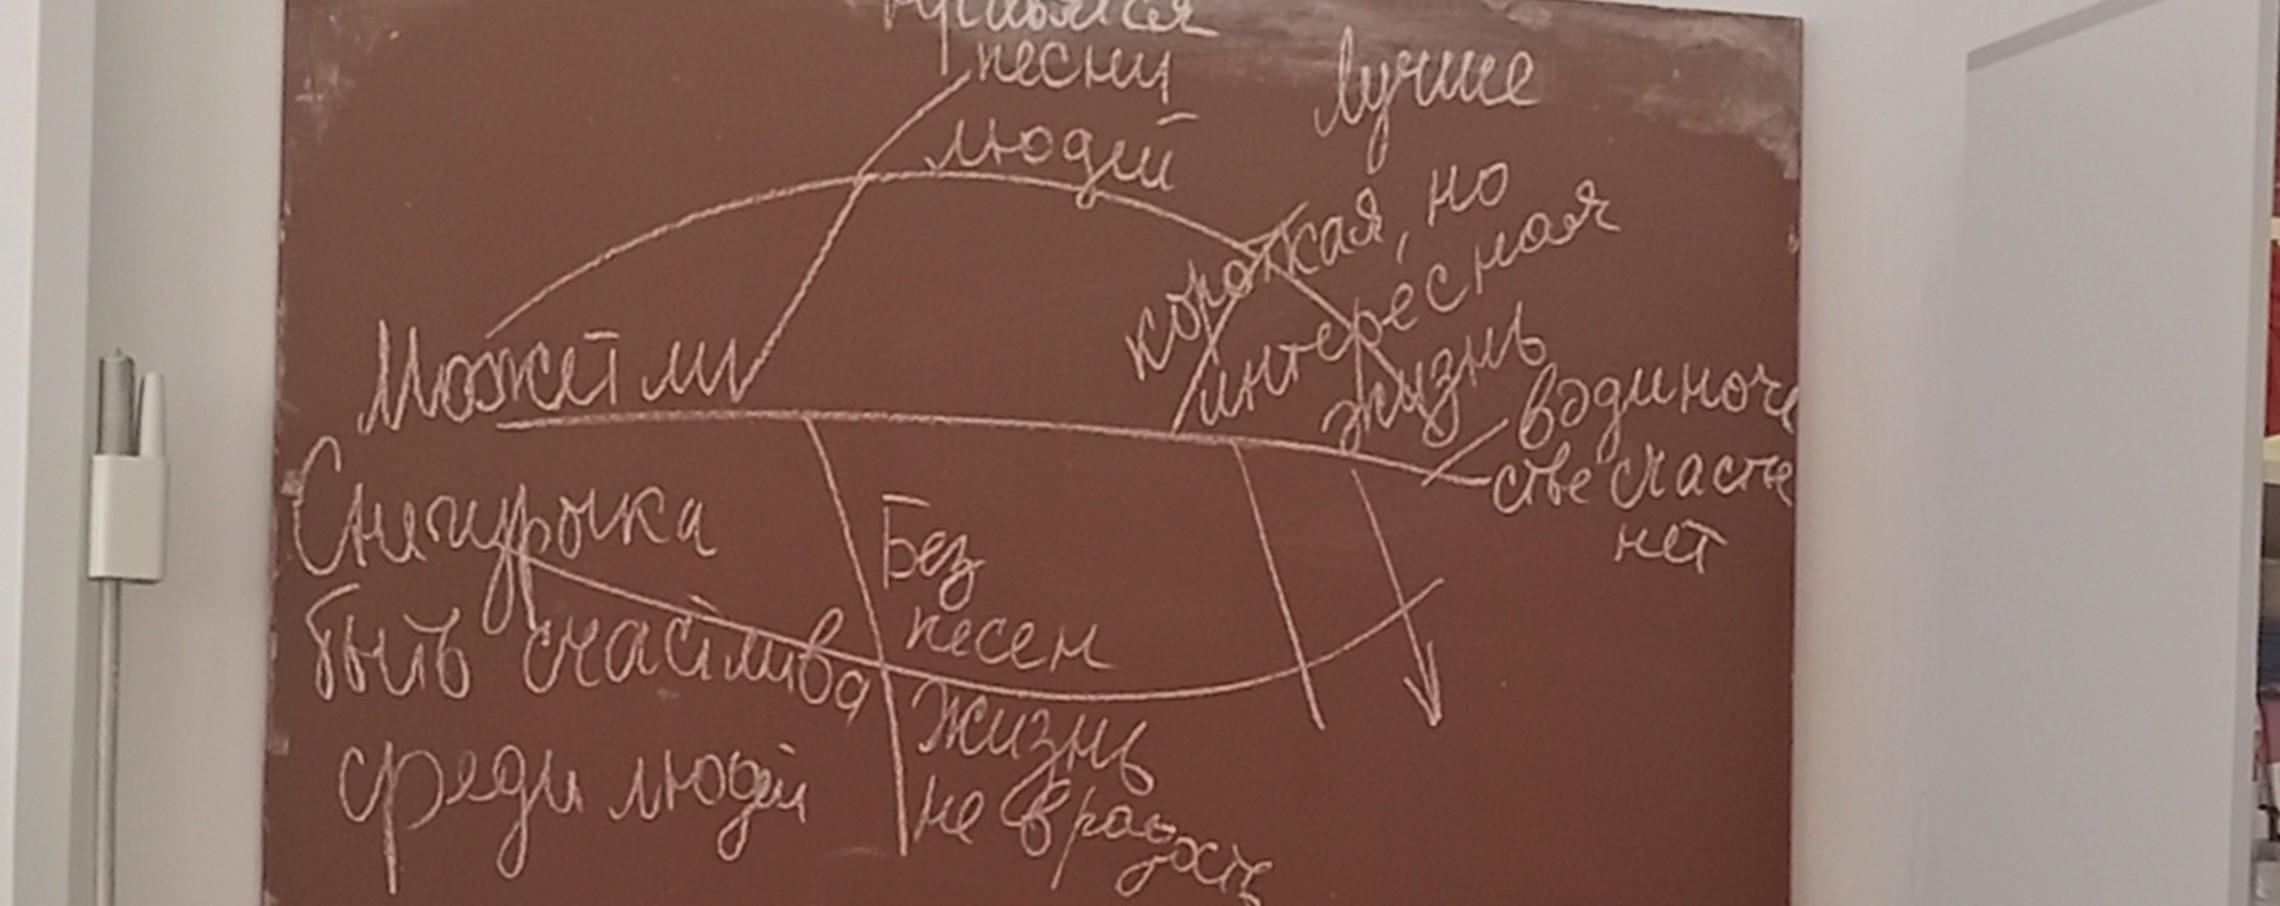 Может ли
Снегурочка
быть счастлива
среди людей
песни
людей
Лучше
короткая, но
интересная
жизнь
в одиноче
стве счастье
нет
Без
песен
жизнь
не в радость